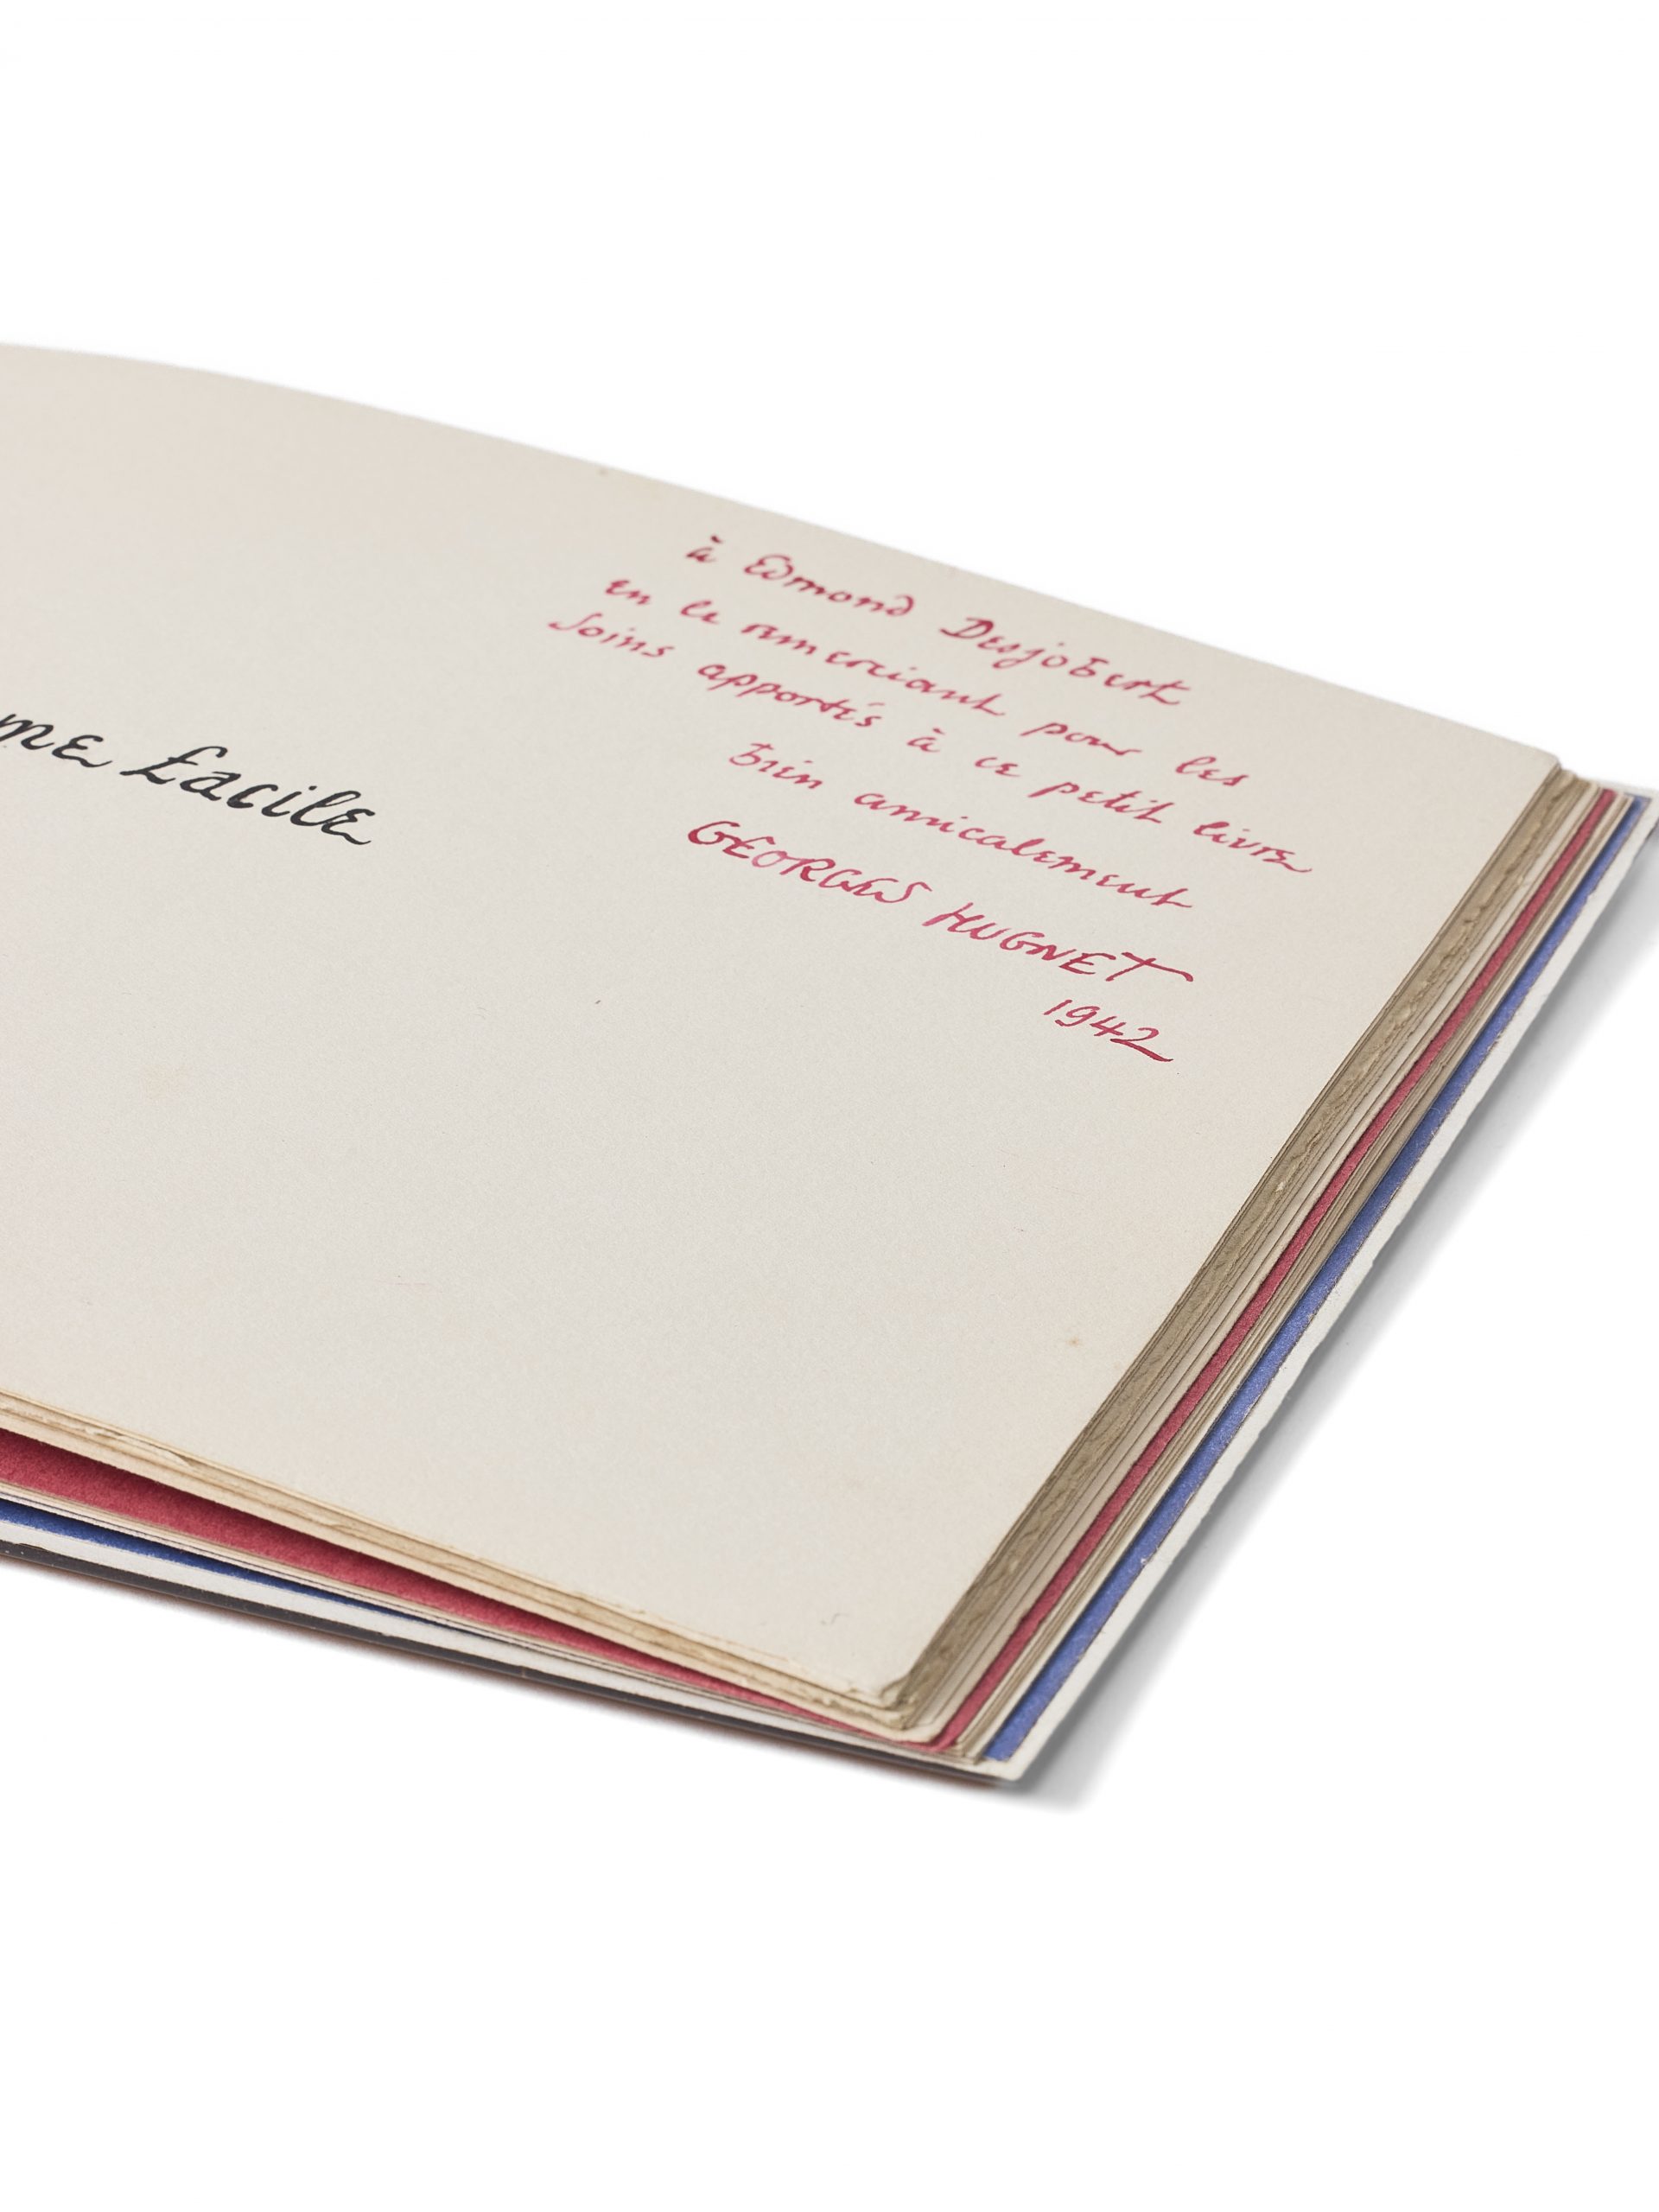 à Edmond Desjobert
en le remerciant pour les
soins apportés à ce petit livre
bien amicalement
GEORGES HUGNET
1942
me facile